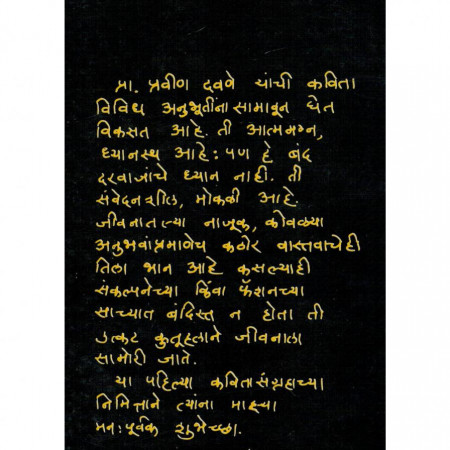 प्रा. प्रवीण दवणे यांची कविता
विविध अनुभूतींना सामावून घेत
विकसत आहे. ती आत्ममग्न,
ध्यानस्थ आहे: पण हे बंद
दरवाजांचे ध्यान नाही. ती
संवेदनशील, मोकळी आहे.
जीवनातल्या नाजूक, कोवळ्या
अनुभवांप्रमाणेच कठोर वास्तवाचेही
तिला भान आहे कसल्याही
संकल्पनेच्या किंवा फॅशनच्या
साच्यात बंदिस्त न होता ती
उत्कट कुतूहलाने जीवनाला
सामोरी जाते.
या पहिल्या कवितासंग्रहाच्या
निमित्ताने त्यांना माझ्या
मन:पूर्वक शुभेच्छा.